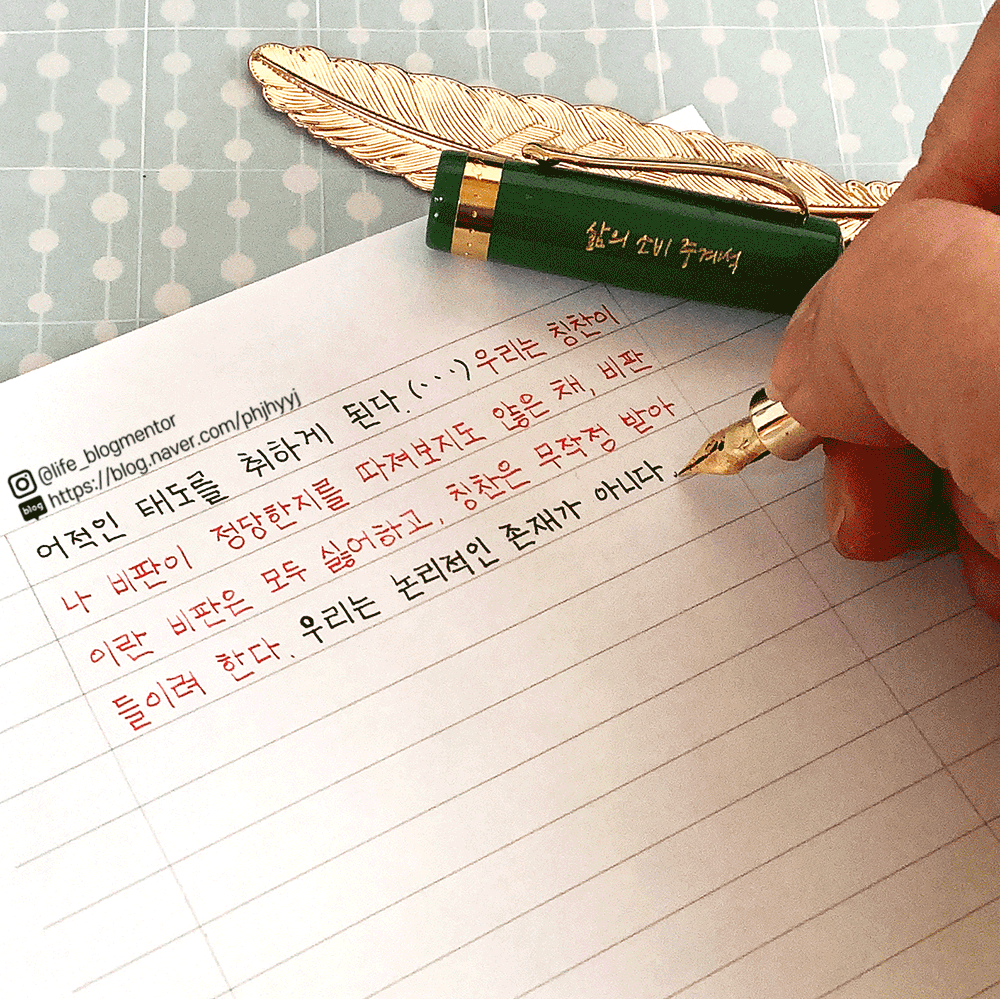 삶의 소비 중계석
@life_blogmentor
blog https://blog.naver.com/phjhyyj
어적인 태도를 취하게 된다.(···) 우리는 칭찬이
나 비판이 정당한지를 따져보지도 않은 채, 비판
이란 비판은 모두 싫어하고, 칭찬은 무작정 받아
들이려 한다. 우리는 논리적인 존재가 아니다